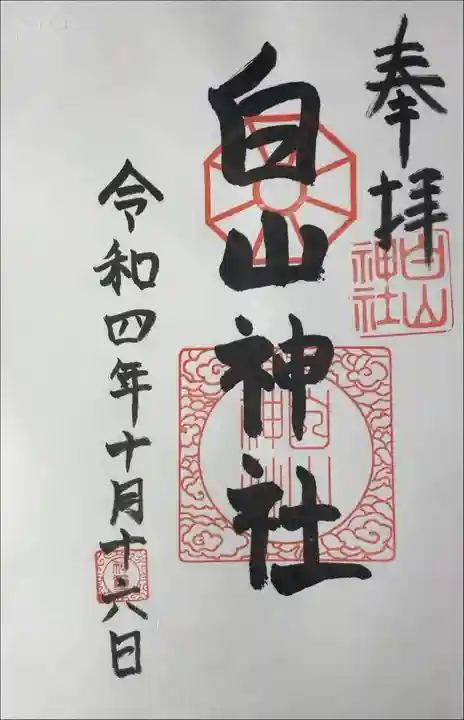 奉拝
白山神社
白山神社
令和四年十月十六日